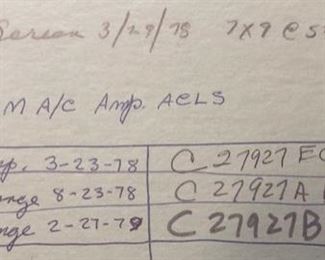 3/29/78 7x9 @
M A/C Amp. ACLS
3-23-78 C 27927 EC
nge 8-23-78 C 27927A
nge 2-27-79 C 27927B